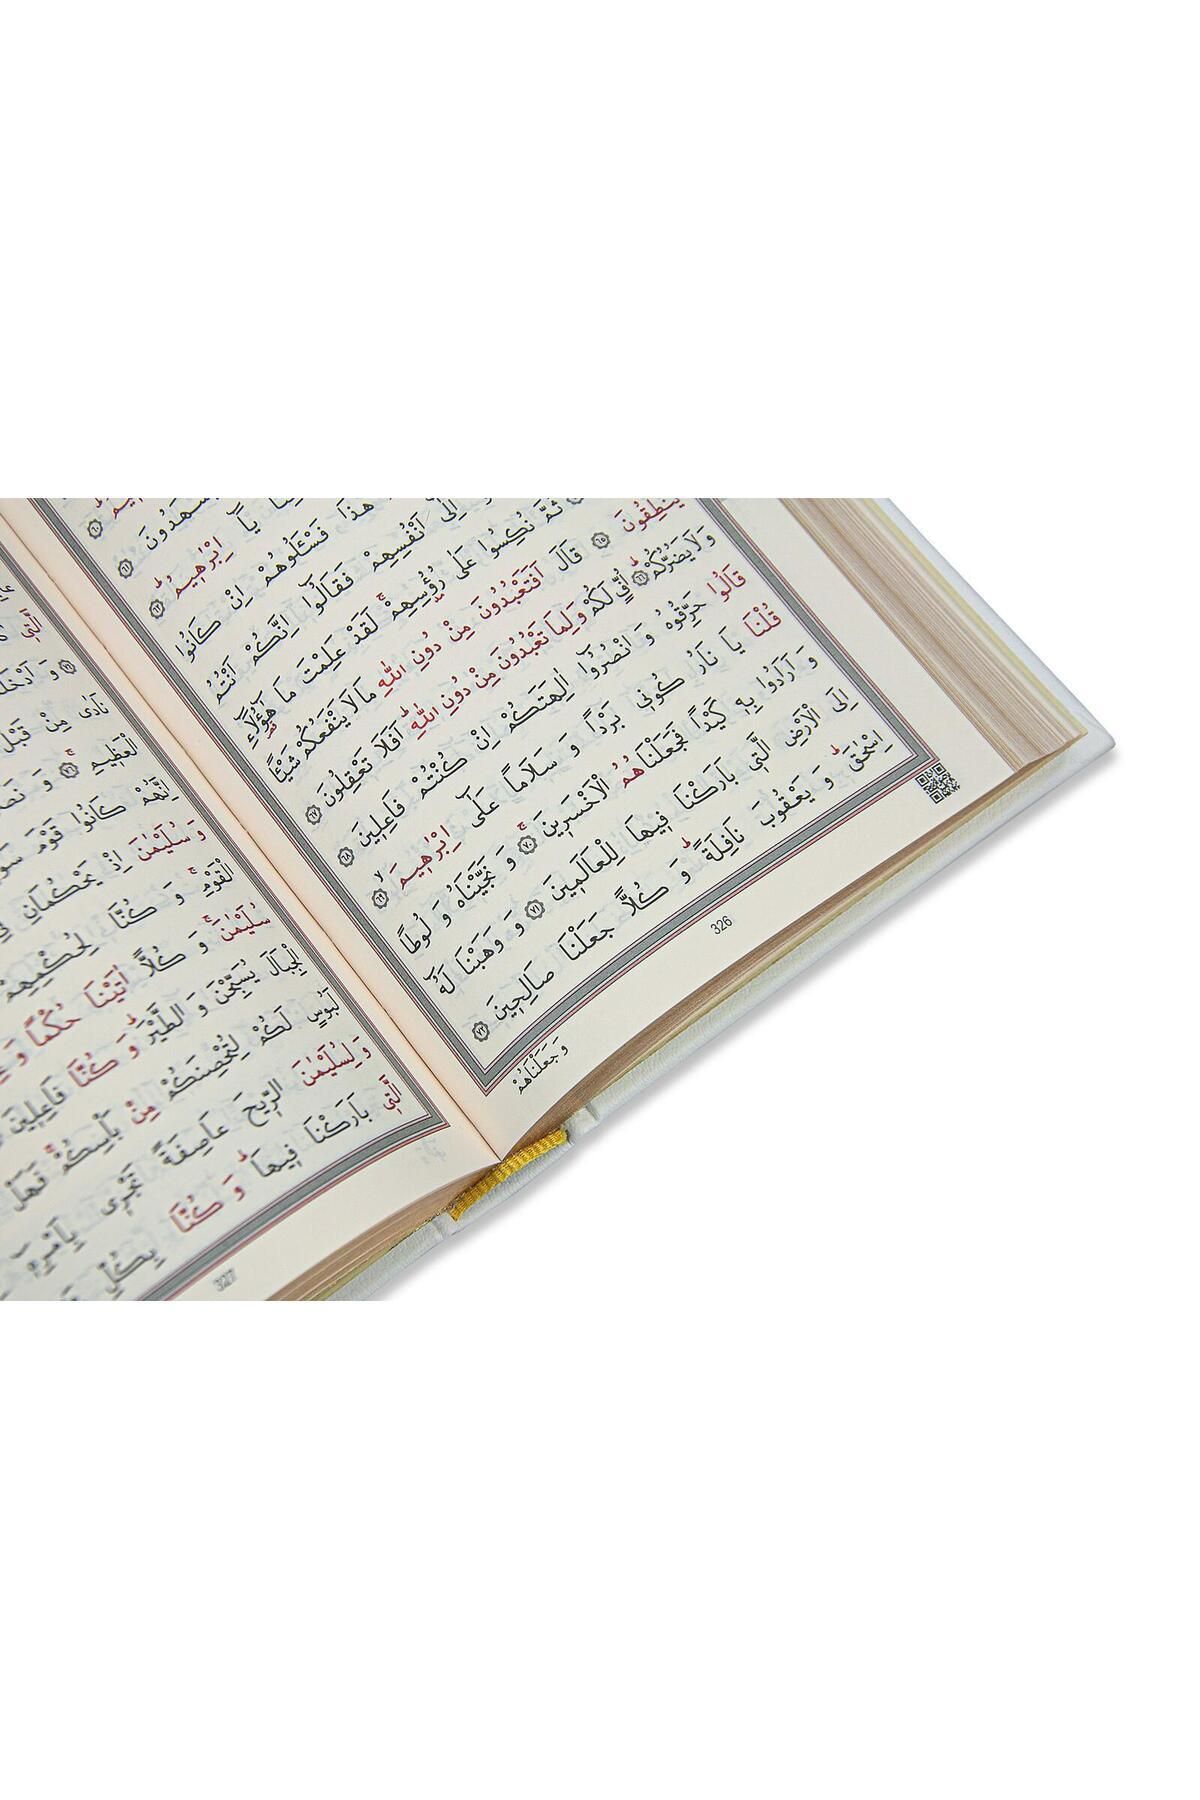 اِبْرٰه۪يمُۜ ﴿٦٠﴾
يَشْهَدُونَ ﴿٦١﴾
يَٓا اِبْرٰه۪يمُۜ ﴿٦٢﴾
هٰذَا فَسْـَٔلُوهُمْ اِنْ كَانُوا
اِلٰٓى اَنْفُسِهِمْ فَقَالُٓوا اِنَّكُمْ اَنْتُمُ
ثُمَّ نُكِسُوا عَلٰى رُؤُ۫سِهِمْۚ لَقَدْ عَلِمْتَ مَا هٰٓؤُ۬لَٓاءِ
يَنْطِقُونَ ﴿٦٥﴾ قَالَ اَفَتَعْبُدُونَ مِنْ دُونِ اللّٰهِ مَا لَا يَنْفَعُكُمْ شَيْـًٔا
وَلَا يَضُرُّكُمْۜ ﴿٦٦﴾ اُفٍّ لَكُمْ وَلِمَا تَعْبُدُونَ مِنْ دُونِ اللّٰهِۜ اَفَلَا تَعْقِلُونَ ﴿٦٧﴾
قَالُوا حَرِّقُوهُ وَانْصُرُٓوا اٰلِهَتَكُمْ اِنْ كُنْتُمْ فَاعِل۪ينَ ﴿٦٨﴾
قُلْنَا يَا نَارُ كُون۪ي بَرْدًا وَسَلَامًا عَلٰٓى اِبْرٰه۪يمَۙ ﴿٦٩﴾
وَاَرَادُوا بِه۪ كَيْدًا فَجَعَلْنَاهُمُ الْاَخْسَر۪ينَۚ ﴿٧٠﴾ وَنَجَّيْنَاهُ وَلُوطًا
اِلَى الْاَرْضِ الَّت۪ي بَارَكْنَا ف۪يهَا لِلْعَالَم۪ينَ ﴿٧١﴾ وَوَهَبْنَا لَهُٓ
اِسْحٰقَۜ وَيَعْقُوبَ نَافِلَةًۜ وَكُلًّا جَعَلْنَا صَالِح۪ينَ ﴿٧٢﴾
وَجَعَلْنَاهُمْ
326
الَّت۪ي
وَاَدْخَلْنَاهُ
نَادٰى مِنْ قَبْلُ
الْعَظ۪يمِۚ ﴿٧٦﴾ وَنَصَرْنَاهُ
اِنَّهُمْ كَانُوا قَوْمَ سَوْءٍ
وَسُلَيْمٰنَ اِذْ يَحْكُمَانِ فِي
الْقَوْمِۚ وَكُنَّا لِحُكْمِهِمْ
سُلَيْمٰنَۚ وَكُلًّا اٰتَيْنَا حُكْمًا
الْجِبَالَ يُسَبِّحْنَ وَالطَّيْرَۜ وَكُنَّا فَاعِل۪ينَ
لَبُوسٍ لَكُمْ لِتُحْصِنَكُمْ مِنْ بَأْسِكُمْۚ فَهَلْ
وَلِسُلَيْمٰنَ الرّ۪يحَ عَاصِفَةً تَجْر۪ي بِاَمْرِه۪ٓ
الَّت۪ي بَارَكْنَا ف۪يهَاۜ وَكُنَّا بِكُلِّ
327